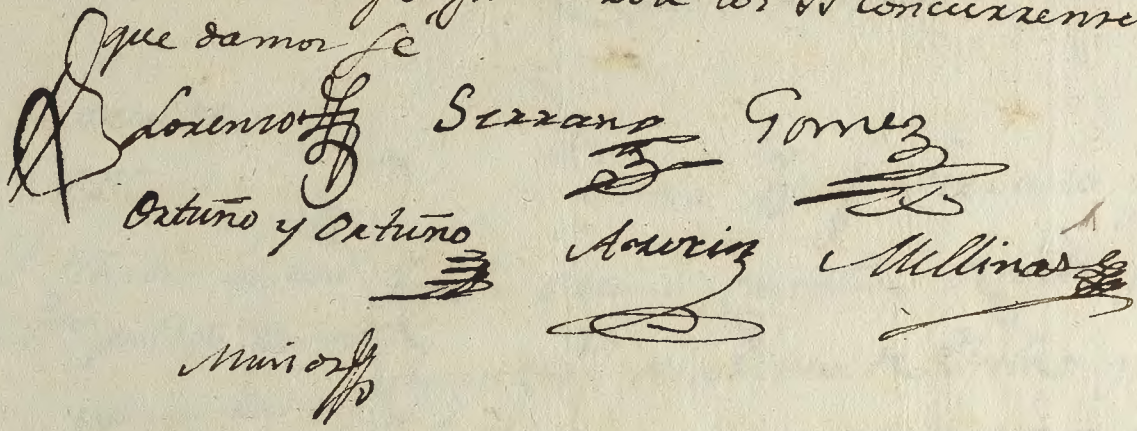 los SS concurrente
que damos fe
Lorenzo Serrano Gomez
Ortuño y Ortuño Azorin Mellinas
Muñoz